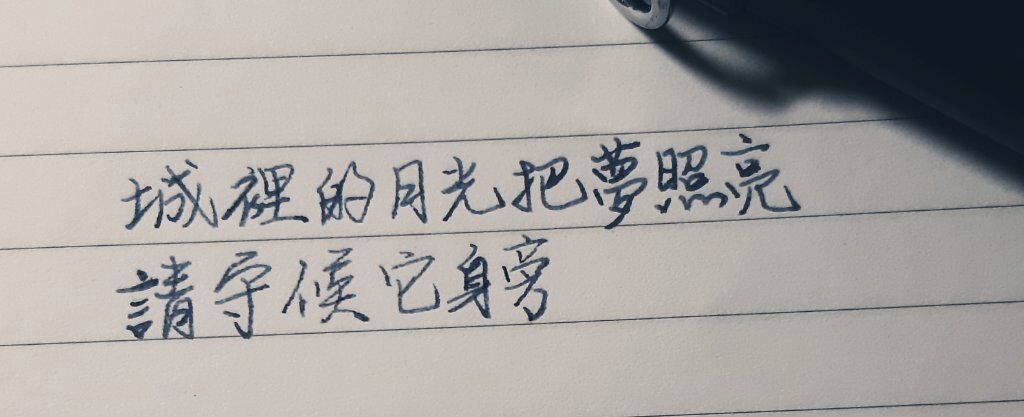 城裡的月光把夢照亮
請守候它身旁